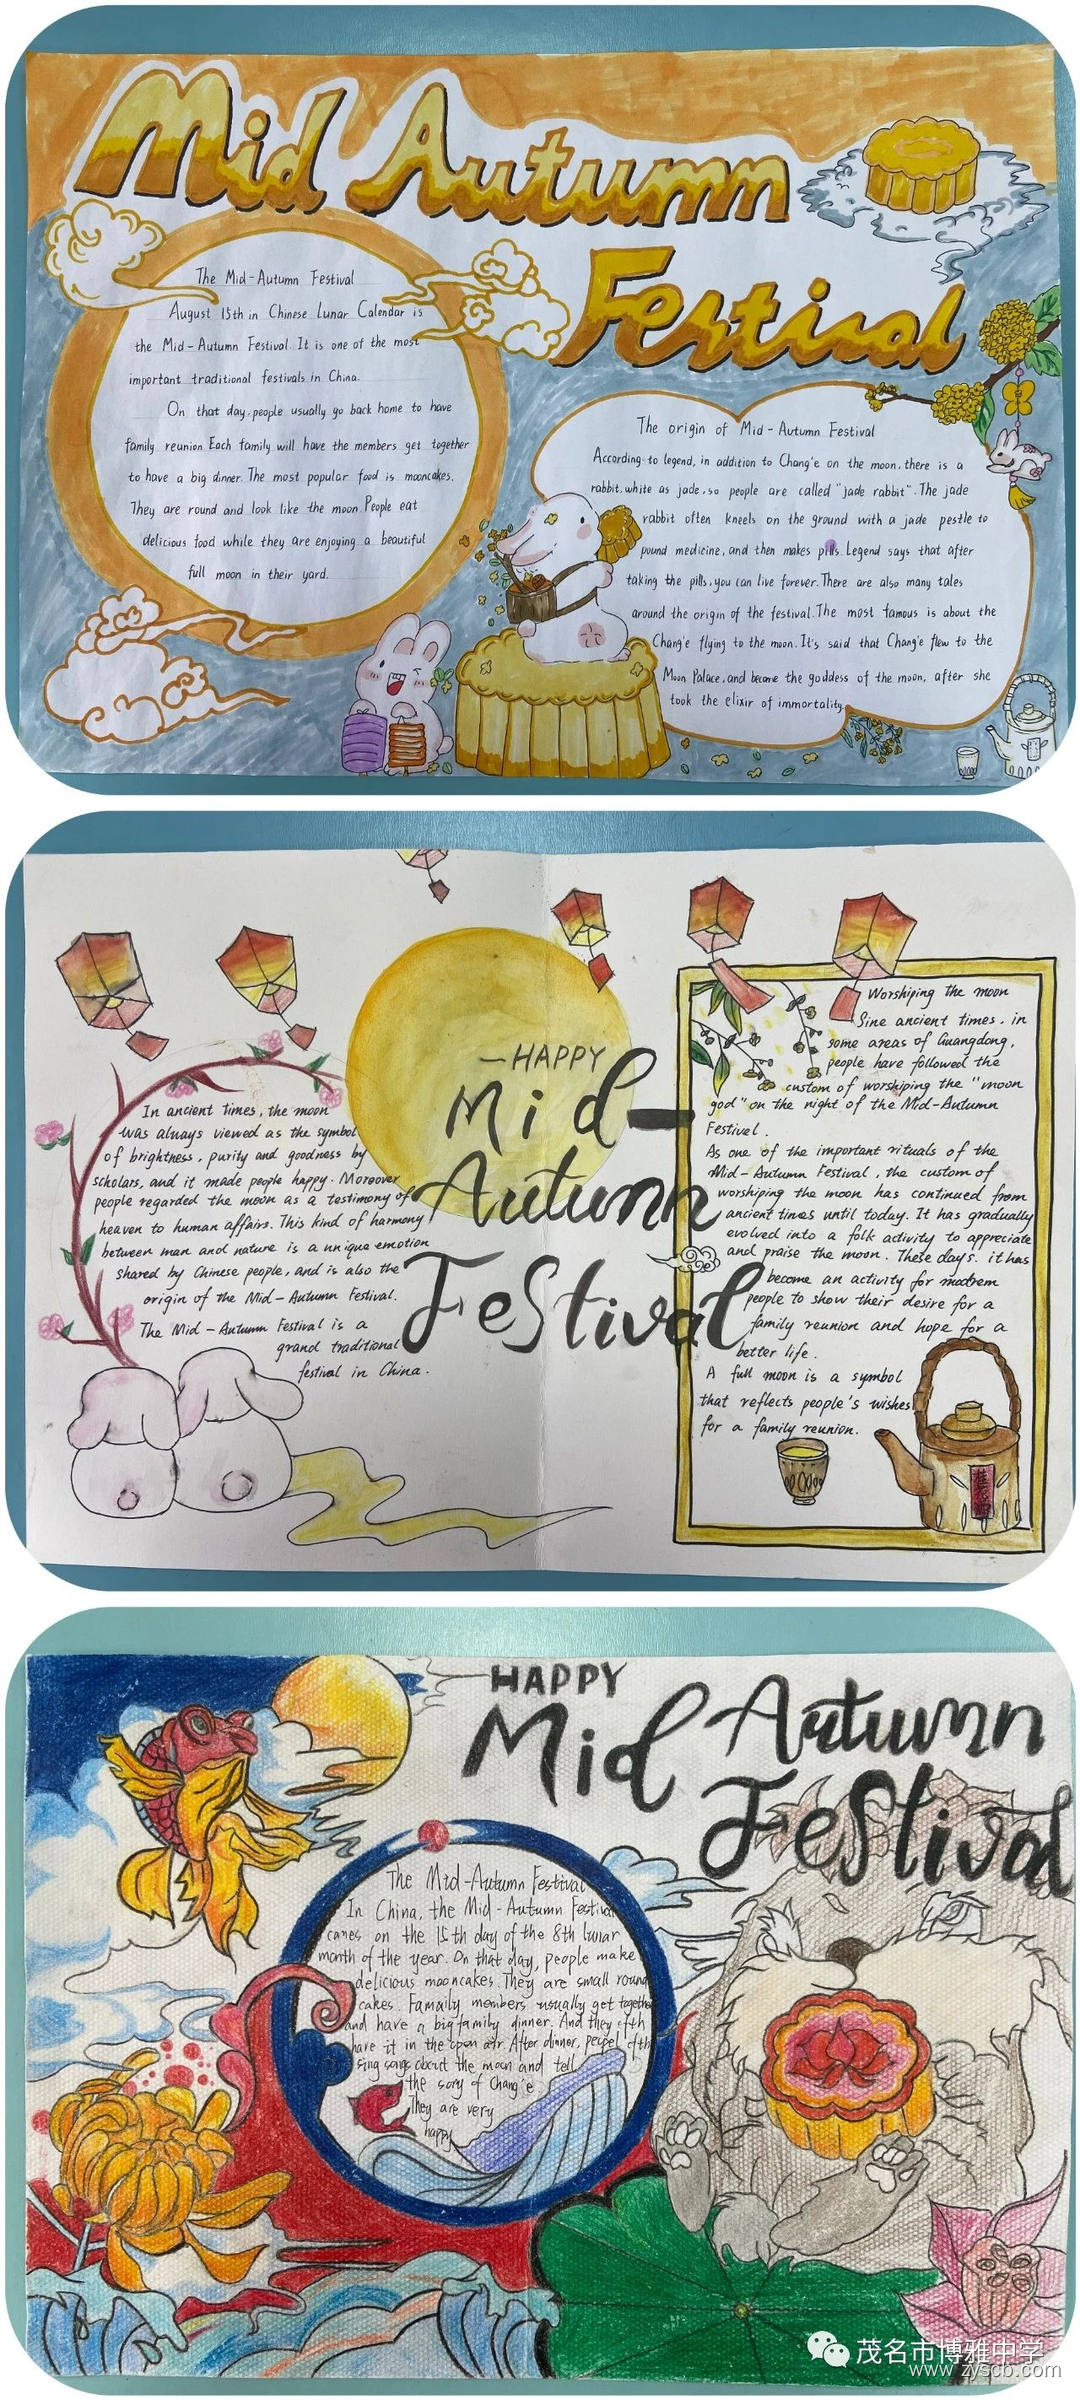 Mid Autumn
Festival
The Mid-Autumn Festival
August 15th in Chinese Lunar Calendar is
the Mid-Autumn Festival. It is one of the most
important traditional festivals in China.
On that day, people usually go back home to have
family reunion. Each family will have the members get together
to have a big dinner. The most popular food is mooncakes.
They are round and look like the moon. People eat
delicious food while they are enjoying a beautiful
full moon in their yard.
The origin of Mid-Autumn Festival
According to legend, in addition to Chang'e on the moon, there is a
rabbit, white as jade, so people are called "jade rabbit". The jade
rabbit often kneels on the ground with a jade pestle to
pound medicine, and then makes pills. Legend says that after
taking the pills, you can live forever. There are also many tales
around the origin of the festival. The most famous is about the
Chang'e flying to the moon. It's said that Chang'e flew to the
Moon Palace, and become the goddess of the moon, after she
took the elixir of immortality.
—HAPPY
Mid-
Autumn
Festival
In ancient times, the moon
was always viewed as the symbol
of brightness, purity and goodness by
scholars, and it made people happy. Moreover
people regarded the moon as a testimony of
heaven to human affairs. This kind of harmony
between man and nature is a unique emotion
shared by Chinese people, and is also the
origin of the Mid-Autumn Festival.
The Mid-Autumn Festival is a
grand traditional
festival in China.
Worshiping the moon
Sine ancient times, in
some areas of Guangdong,
people have followed the
custom of worshiping the "moon
god" on the night of the Mid-Autumn
Festivel.
As one of the important rituals of the
Mid-Autumn Festival, the custom of
worshiping the moon has continued from
ancient times until today. It has gradually
evolved into a folk activity to appreciate
and praise the moon. These days. it has
become an activity for modrem
people to show their desire for a
family reunion and hope for a
better life.
A full moon is a symbol
that reflects people's wishes
for a family reunion.
HAPPY
Mid Autumn
Festival
The Mid-Autumn Festival
In China, the Mid-Autumn Festival
cames on the 15th day of the 8th lunar
month of the year. On that day, people make
delicious mooncakes. They are small round
cakes. Famaily members usually get together
and have a big family dinner. And they ofth
have it in the opun air. After dinner, peipel ofth
sing songs about the moon and tell
the sory of Chang'e
They are very
happy
茂名市博雅中学
www.zyscb.com